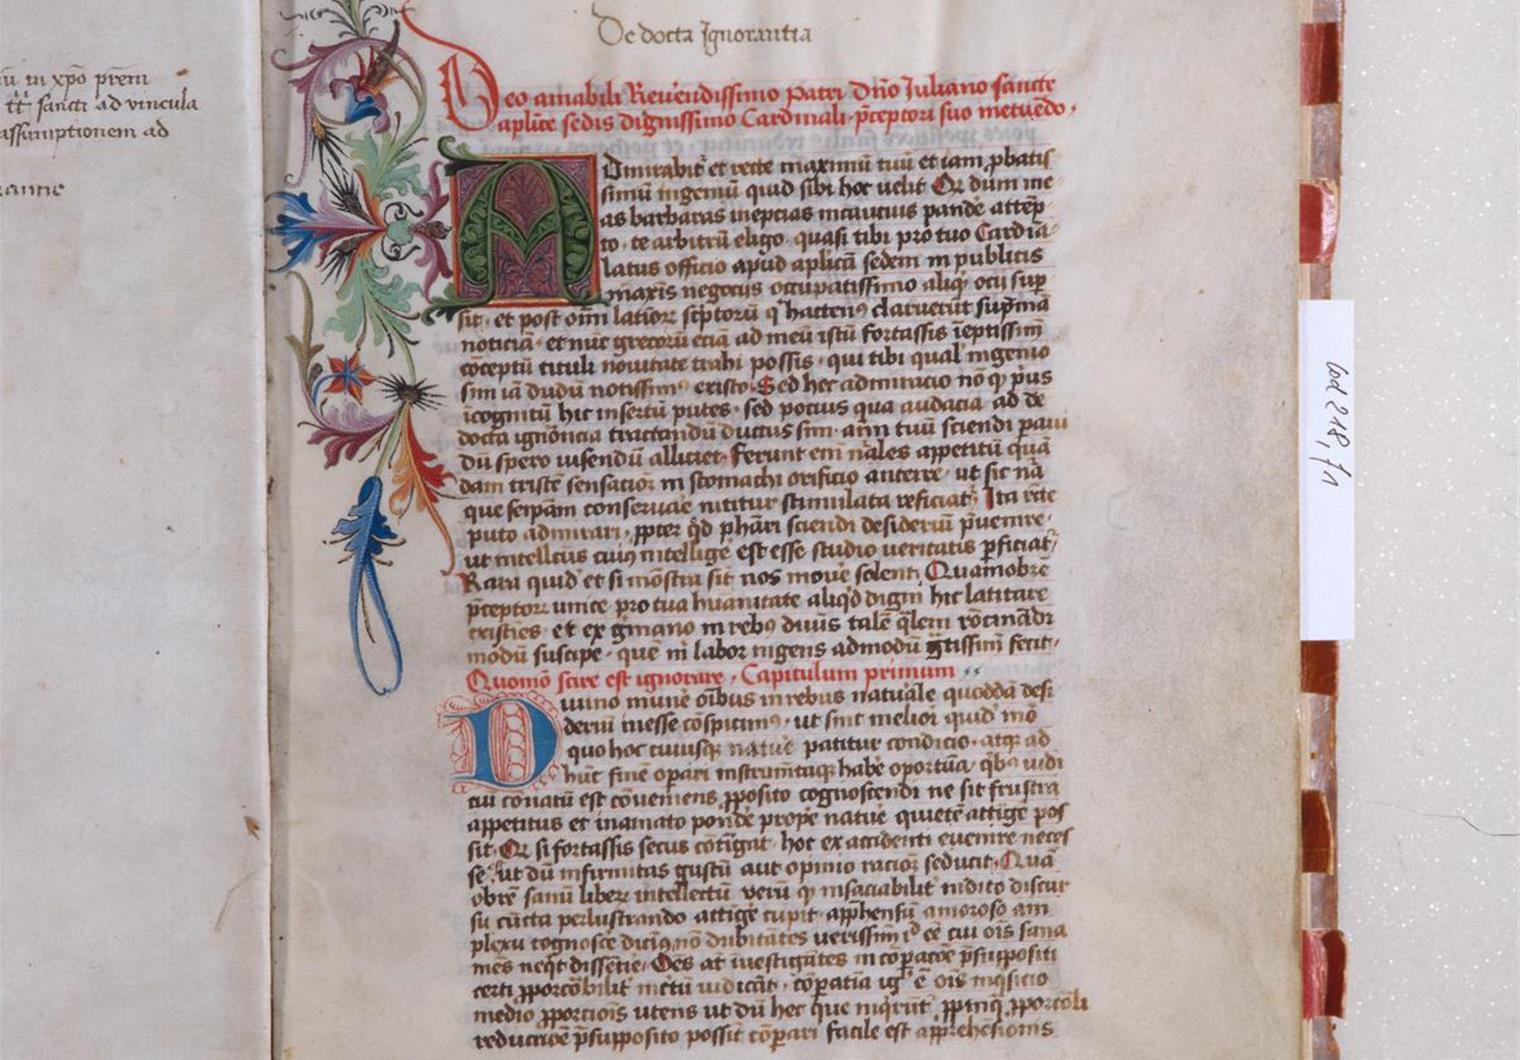 iu in xpo prem
tt sancti ad vincula
assumptionem ad
rantie
De docta Ignorantia
Deo amabili Reuendissimo patri dno Juliano sancte
aplice sedis dignissimo Cardinali preceptori suo metuedo
Admirabit et recte maximu tuu et iam probatis
simu ingeniu quid sibi hoc uelit Qr dum me
as barbaras ineptias incautius pande attep
to te arbitru eligo quasi tibi pro tuo Cardia
latus officio apud aplica sedem in publicis
maxis negociis occupatissimo aliq ocii sup
sit et post oim latior sciptoru q hactenus claruerut suprma
noticia et nuc grecoru ecia ad meu istu fortassis ieptissim
coceptu tituli nouitate trahi possis qui tibi qual ingenio
sim ia dudu notissimus existo Sed hec admiracio no q prius
icognitu hic insertu putes sed pocius qua audacia ad de
docta ignorancia tractandu ductus sim aim tuu sciendi paui
du spero uisendu alliciet Ferunt eni nales appetitu qua
dam triste sensacioe in stomachi orificio anteire ut sic na
que seipam conseruare nititur stimulata reficiat Ita recte
puto admirari propter qd phari sciendi desideriu preuenire
ut intellcus cuius intellige est esse studio ueritatis perficiat
Rara quid et si mostra sit nos moue solent Quamobre
preceptor unice pro tua huanitate aliqd digni hic latitare
existies et ex gmano in rebus diuis tale qlem rocinadi
modu suscipe que m labor ingens admodu gtissim fecit
Quomo scire est ignorare Capitulum primum
Diuino mune oibus in rebus natuale quodda desi
deriu inesse cospicimus ut sint melior quid mo
quo hoc cuiusque natue patitur condicio atque ad
huc fine opari instrumtaque habe oportua qbus iudi
ciu conatu est coueniens proposito cognoscendi ne sit frustra
appetitus et in amato ponde prope natue quiete attige pos
sit Qr si fortassis secus cotigat hoc ex accidenti euenire neces
se ut du infirmitas gustu aut opinio racioe seducit Qua
obre sanu liber intellectu veru q insaciabilit indito discur
su cucta perlustrando attige cupit apphensu amoroso am
plexu cognosce dicius no dubitates verissim id ee cui ois sana
mes neqt dissetire Oes at iuestigates in coparacoe presuppositi
certi proporcobilit incertu iudicat coparatia ig e ois inqsicio
medio proporciois utens ut du hec que inqrut propinq proporcoli
reductioe presupposito possit copari facile est apprehesionis
Cod 218, f 1